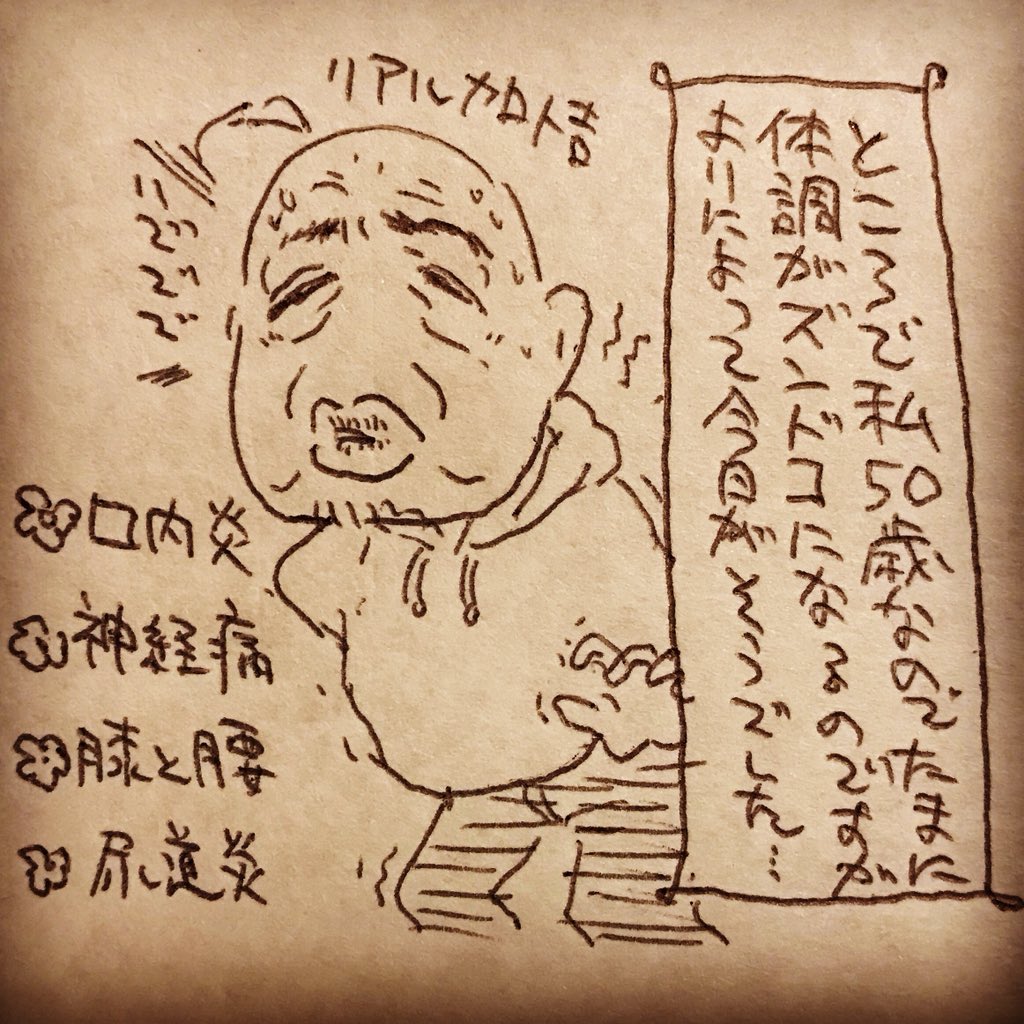 ところで私50歳なのでたまに
体調がズンドコになるのですが
よりによって今回がそうでした…
リアル加齢
口内炎
神経痛
膝と腰
尿道炎